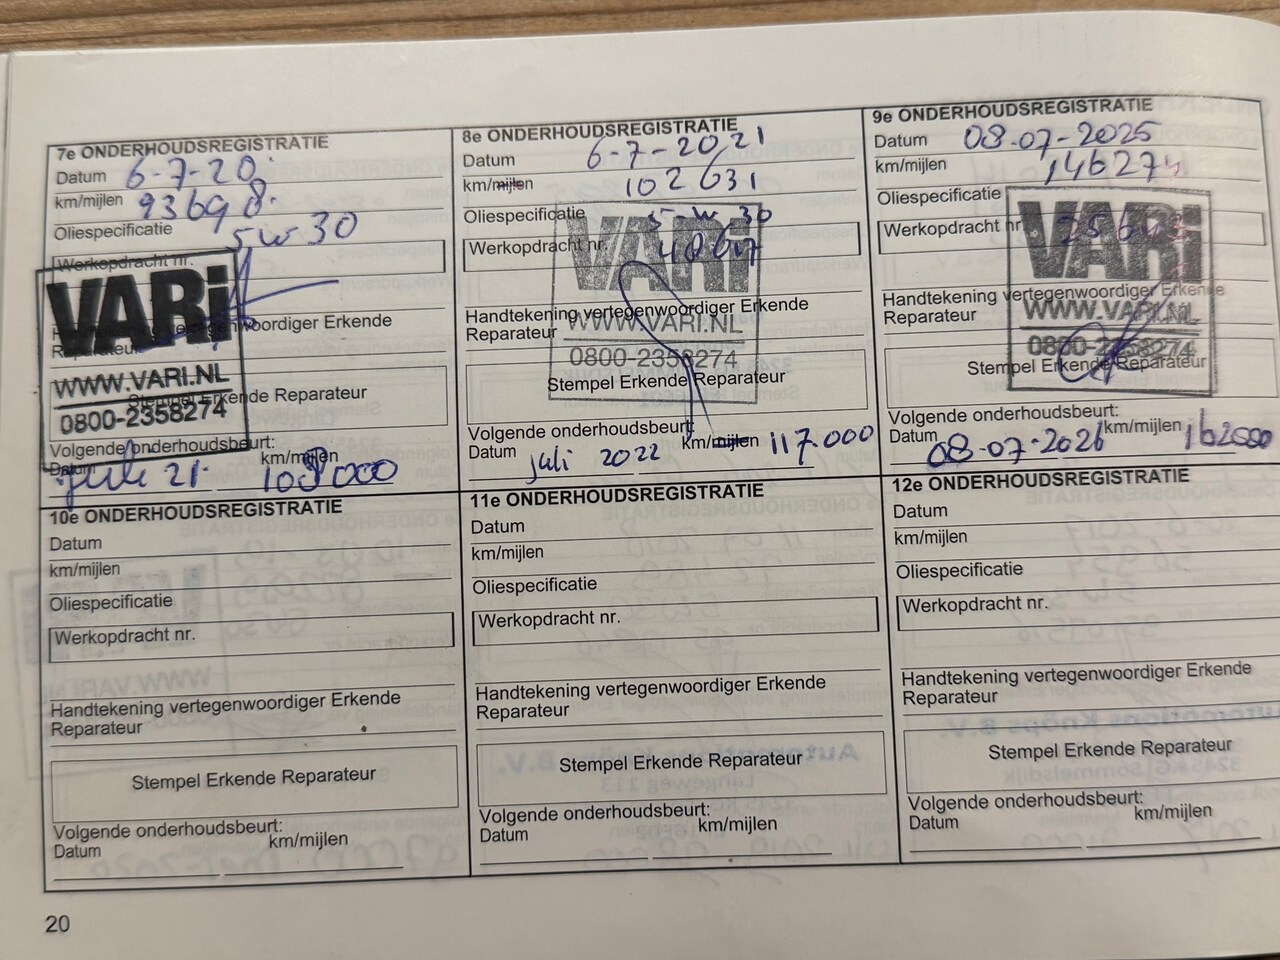 7e ONDERHOUDSREGISTRATIE
Datum 6-7-20
km/mijlen 93698
Oliespecificatie
5W30
Werkopdracht nr.
VARi
Handtekening vertegenwoordiger Erkende
Reparateur
WWW.VARI.NL
Stempel Erkende Reparateur
0800-2358274
Volgende onderhoudsbeurt:
Datum km/mijlen
juli 21
8e ONDERHOUDSREGISTRATIE
Datum 6-7-2021
km/mijlen 102631
Oliespecificatie 5-W 30
Werkopdracht nr.
VARi
Handtekening vertegenwoordiger Erkende
Reparateur WWW.VARI.NL
0800-2358274
Stempel Erkende Reparateur
Volgende onderhoudsbeurt:
Datum juli 2022 km/mijlen 117.000
9e ONDERHOUDSREGISTRATIE
Datum 08-07-2025
km/mijlen
Oliespecificatie
Werkopdracht nr.
VARi
Handtekening vertegenwoordiger Erkende
Reparateur WWW.VARI.NL
0800-2358274
Stempel Erkende Reparateur
Volgende onderhoudsbeurt:
Datum 08-07-2026 km/mijlen 162000
10e ONDERHOUDSREGISTRATIE
Datum
km/mijlen
Oliespecificatie
Werkopdracht nr.
Handtekening vertegenwoordiger Erkende
Reparateur
Stempel Erkende Reparateur
Volgende onderhoudsbeurt:
Datum km/mijlen
11e ONDERHOUDSREGISTRATIE
Datum
km/mijlen
Oliespecificatie
Werkopdracht nr.
Handtekening vertegenwoordiger Erkende
Reparateur
Stempel Erkende Reparateur
Volgende onderhoudsbeurt:
Datum km/mijlen
12e ONDERHOUDSREGISTRATIE
Datum
km/mijlen
Oliespecificatie
Werkopdracht nr.
Handtekening vertegenwoordiger Erkende
Reparateur
Stempel Erkende Reparateur
Volgende onderhoudsbeurt:
Datum km/mijlen
20